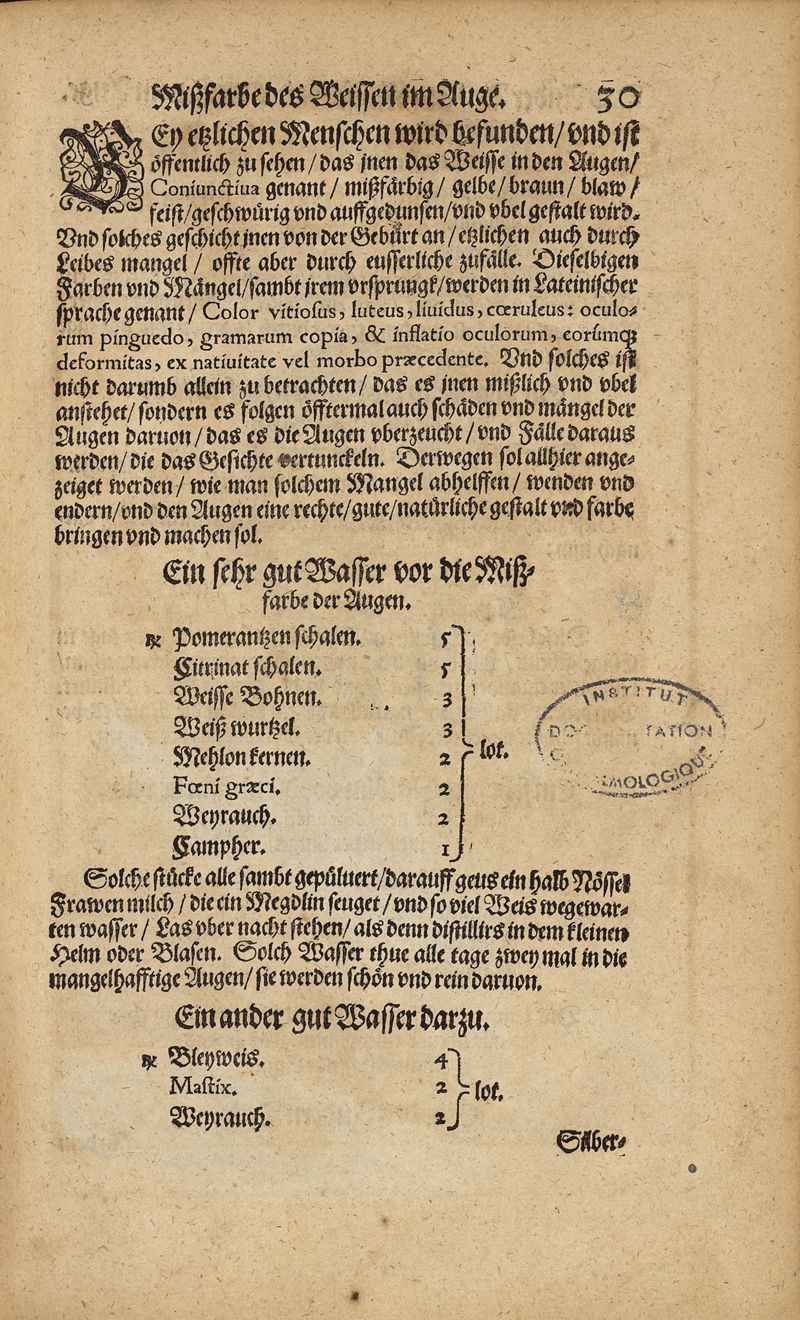 Mißfarbe des Weissen im Auge. 30
BEy etzlichen Menschen wird befunden/ vnd ist
öffentlich zu sehen/ das jnen das Weisse in den Augen/
Coniunctiua genant/ mißfärbig/ gelbe/ braun/ blaw/
feist/ geschwürig vnd auffgedunsen/ vnd vbel gestalt wird.
Vnd solches geschicht jnen von der Gebürt an/ etzlichen auch durch
Leibes mangel/ offte aber durch eusserliche zufälle. Dieselbigen
Farben vnd Mängel/ sambt jrem vrsprungk/ werden in Lateinischer
sprache genant/ Color vitiosus, luteus, liuidus, cœruleus: oculo-
rum pinguedo, gramarum copia, & inflatio oculorum, eorúmq;
deformitas, ex natiuitate vel morbo præcedente. Vnd solches ist
nicht darumb allein zu betrachten/ das es jnen mißlich vnd vbel
anstehet/ sondern es folgen öfftermal auch schäden vnd mängel der
Augen daruon/ das es die Augen vberzeucht/ vnd Fälle daraus
werden/ die das Gesichte vertunckeln. Derwegen sol allhier ange-
zeiget werden/ wie man solchem Mangel abhelffen/ wenden vnd
endern/ vnd den Augen eine rechte/ gute/ natürliche gestalt vnd farbe
bringen vnd machen sol.
Ein sehr gut Wasser vor die Miß-
farbe der Augen.
℞ Pomerantzen schalen. 5
Citrinat schalen. 5
Weisse Bohnen. 3
Weiß wurtzel. 3
Mehlon kernen. 2 lot.
Fœni græci. 2
Weyrauch. 2
Campher. 1
INSTITUT
DOC TATION
MOLOGIQUE
Solche stücke alle sambt gepüluert/ darauff geus ein halb Nössel
Frawen milch/ die ein Megdlin seuget/ vnd so viel Weis wegewar-
ten wasser/ Las vber nacht stehen/ als denn distillirs in dem kleinen
Helm oder Blasen. Solch Wasser thue alle tage zwey mal in die
mangelhafftige Augen/ sie werden schön vnd rein daruon.
Ein ander gut Wasser darzu.
℞ Bleyweis. 4
Mastix. 2 lot.
Weyrauch. 2
Silber-